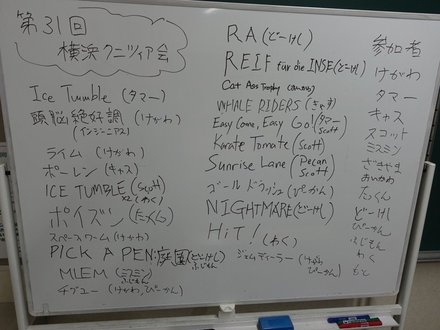 第31回
横浜クニツィア会
Ice Tumble (タマー)
頭脳絶好調 (けがわ)
(インジーニアス)
ライム (けがわ)
ポーレン (キャス)
ICE TUMBLE (Scott)
x2 (わく)
ポイズン (たっくん)
スペースワーム (けがわ)
PICK A PEN:庭園 (どーけし)
ふじもん
MLEM (ミスミン)
ふじもん
チグユー (けがわ, ぴーかん)
RA (どーけし)
REIF für die INSEL (どーけし)
Cat Ass Trophy
WHALE RIDERS (きゃす)
Easy Come, Easy Go! (タマー)
Scott
Karate Tomate (Scott)
Sunrise Lane (Pecan)
Scott
ゴールドラッシュ (ぴーかん)
NIGHTMARE (どーけし)
HiT! (わく)
ジェムディーラー (けがわ
ぴーかん)
参加者
けがわ
タマー
キャス
スコット
ミスミン
ざきやま
おいかわ
たっくん
どーけし
ぴーかん
ふじもん
わく
もと